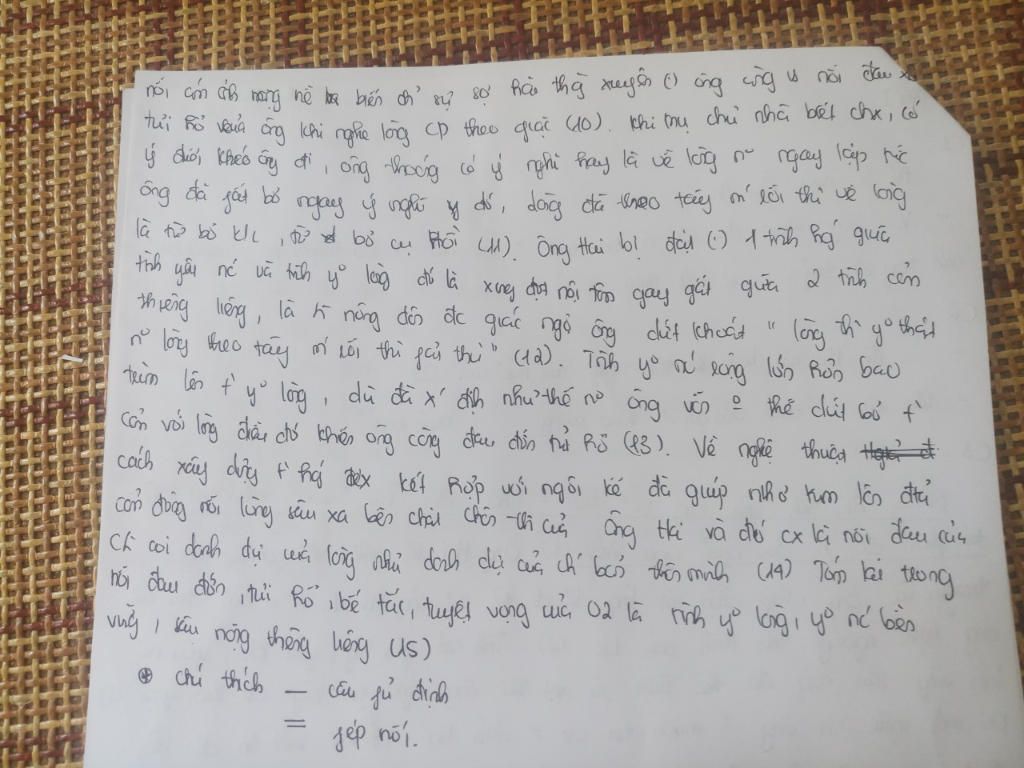 nối ám ảnh nặng nề biến th' sự sợ hãi thg xuyên () ông cùng vs nỗi đau xó
tủi hổ của ông khi nghe làng CD theo giặc (10). Khi mụ chủ nhà biết chx, có
ý đuổi khéo ông đi, ông thoáng có ý nghĩ hay là về làng n° ngay lập tức
ông đã gạt bỏ ngay ý nghĩ ý đó, làng đã theo tây m' rồi thì về làng
là từ bỏ k/c, từ bỏ cụ Hồ (11). Ông Hai bị đặt (') 1 tình há giữa
tình yêu nc' và tình y° làng đó là xung đột nội tâm gay gắt giữa 2 tình cảm
thiêng liêng, là 1 nông dân đc giác ngộ ông dứt khoát " làng thì y° thật
n° làng theo tây m' rồi thì fải thù" (12). Tình y° nc' rộng lớn hơn bao
trùm lên t' y° làng, dù đã x' định như thế n° ông vẫn o thể dứt bỏ t'
cảm với làng điều đó khiến ông càng đau đớn tủi hổ (13). Về nghệ thuật
cách xây dựng t' há đx kết hợp với ngôi kể đã giúp nhà Kim Lân đã
cảm động nỗi lòng sâu xa bên chặt chân thi của Ông Hai và đó cx là nỗi đau của
ch' coi danh dự của làng như danh dự của ch' bản thân mình (14) Tóm lại trong
nỗi đau đớn, tủi hổ, bế tắc, tuyệt vọng của O2 là tình y° làng, y° nc' bền
vững, sâu nặng thiêng liêng (15)
⊛ chú thích — câu fủ định
= fép nối.